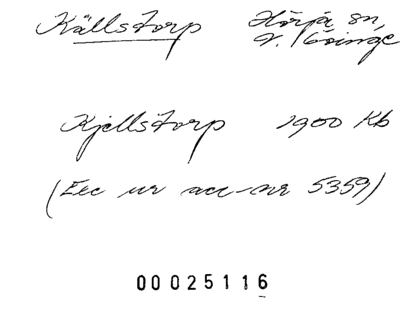 Källstorp Hörja sn,
V. Göinge
Kjellstorp 1900 Kb
(Exc ur acc-nr 5359)
00025116